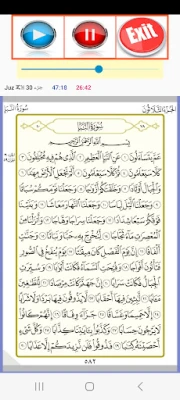 Exit
Juz 30 جزء 47:18 26:42
سُورَةُ النَّبَإِ الجُزْءُ الثَّلَاثُونَ
سُورَةُ النَّبَإِ
بِسْمِ اللَّهِ الرَّحْمَٰنِ الرَّحِيمِ
عَمَّ يَتَسَاءَلُونَ ١ عَنِ النَّبَإِ الْعَظِيمِ ٢ الَّذِي هُمْ فِيهِ مُخْتَلِفُونَ ٣
كَلَّا سَيَعْلَمُونَ ٤ ثُمَّ كَلَّا سَيَعْلَمُونَ ٥ أَلَمْ نَجْعَلِ الْأَرْضَ مِهَادًا ٦
وَالْجِبَالَ أَوْتَادًا ٧ وَخَلَقْنَاكُمْ أَزْوَاجًا ٨ وَجَعَلْنَا نَوْمَكُمْ سُبَاتًا ٩
وَجَعَلْنَا اللَّيْلَ لِبَاسًا ١٠ وَجَعَلْنَا النَّهَارَ مَعَاشًا ١١ وَبَنَيْنَا
فَوْقَكُمْ سَبْعًا شِدَادًا ١٢ وَجَعَلْنَا سِرَاجًا وَهَّاجًا ١٣ وَأَنْزَلْنَا مِنَ
الْمُعْصِرَاتِ مَاءً ثَجَّاجًا ١٤ لِنُخْرِجَ بِهِ حَبًّا وَنَبَاتًا ١٥ وَجَنَّاتٍ
أَلْفَافًا ١٦ إِنَّ يَوْمَ الْفَصْلِ كَانَ مِيقَاتًا ١٧ يَوْمَ يُنْفَخُ فِي الصُّورِ
فَتَأْتُونَ أَفْوَاجًا ١٨ وَفُتِحَتِ السَّمَاءُ فَكَانَتْ أَبْوَابًا ١٩ وَسُيِّرَتِ
الْجِبَالُ فَكَانَتْ سَرَابًا ٢٠ إِنَّ جَهَنَّمَ كَانَتْ مِرْصَادًا ٢١ لِلطَّاغِينَ
مَآبًا ٢٢ لَابِثِينَ فِيهَا أَحْقَابًا ٢٣ لَا يَذُوقُونَ فِيهَا بَرْدًا وَلَا شَرَابًا ٢٤
إِلَّا حَمِيمًا وَغَسَّاقًا ٢٥ جَزَاءً وِفَاقًا ٢٦ إِنَّهُمْ كَانُوا
لَا يَرْجُونَ حِسَابًا ٢٧ وَكَذَّبُوا بِآيَاتِنَا كِذَّابًا ٢٨ وَكُلَّ شَيْءٍ
أَحْصَيْنَاهُ كِتَابًا ٢٩ فَذُوقُوا فَلَنْ نَزِيدَكُمْ إِلَّا عَذَابًا ٣٠
٥٨٢